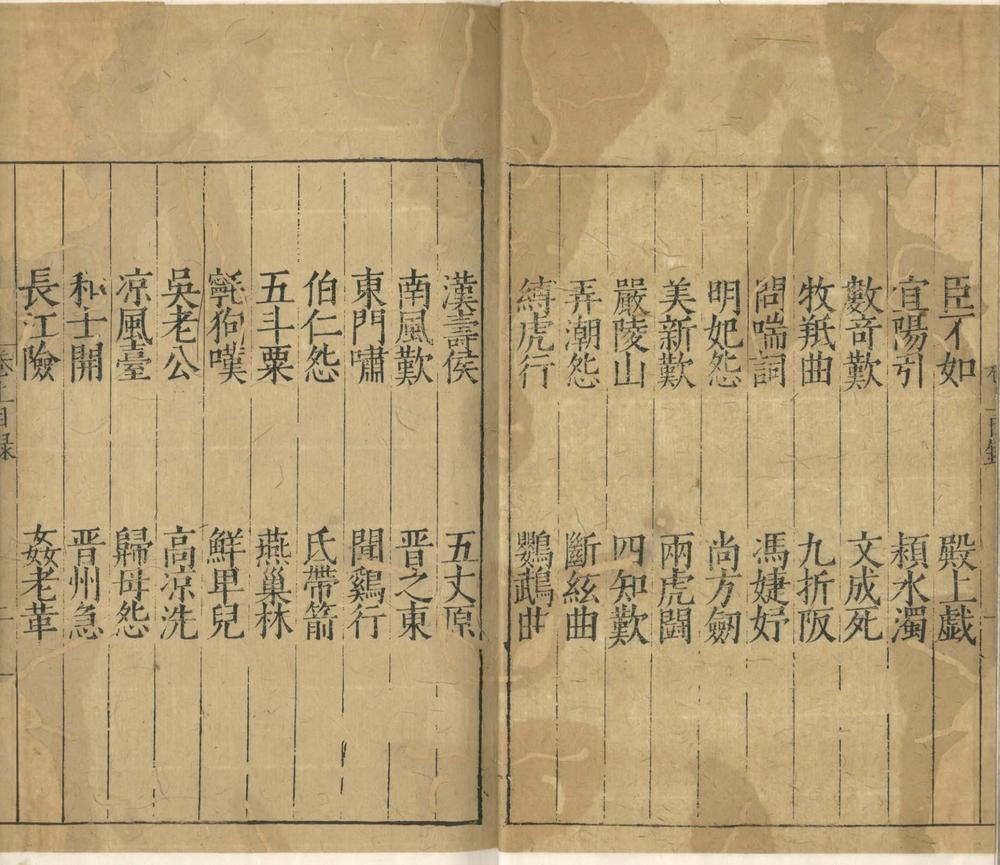 臣不如 殿上戲
宜陽引 潁水濁
數竒歎 文成死
牧羝曲 九折阪
問喘詞 馮婕妤
明妃怨 尚方劒
美新歎 兩虎鬪
嚴陵山 四知歎
弄潮怨 斷絃曲
縛虎行 鸚鵡曲
漢壽侯 五丈原
南風歎 晋之東
東門嘯 聞鷄行
伯仁怨 氐帶箭
五斗粟 燕巢林
狗嘆 鮮卑兒
吳老公 高凉洗
凉風臺 歸母怨
和士開 晋州急
長江險 姦老革
卷上目録 二